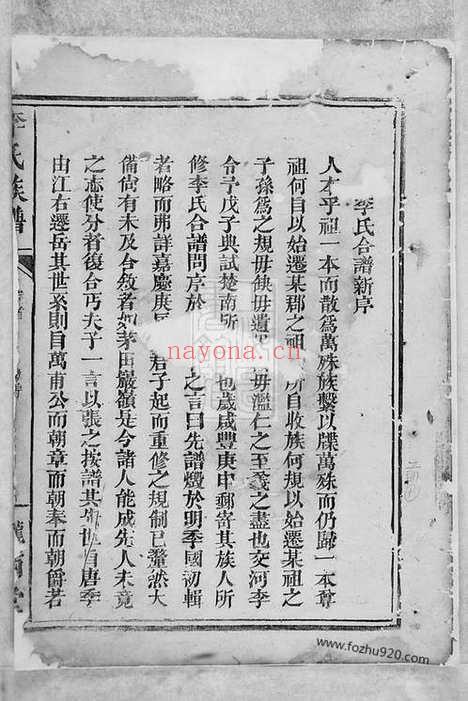 李氏合譜新序
人才乎祖一本而散爲萬殊族繫以牒萬殊而仍歸一本尊
祖何自以始遷某郡之祖 所自收族何規以始遷某祖之
子孫爲之規毋缺毋遺 毋濫仁之至義之盡也交河李
令予戊子典試楚南所 也歲咸豐庚申郵寄其族人所
修李氏合譜問序於 之言曰先譜燬於明季國初輯
者略而弗詳嘉慶庚 君子起而重修之規制已釐然大
備尚有未及合敘者如茅田巖嶺是今諸人能成先人未竟
之志使分者復合丐夫子一言以張之按譜其 自唐季
由江右遷岳其世系則自萬甫公而朝章而朝奉而朝爵若
李氏族譜
nayona.cn
www.fozhu920.com